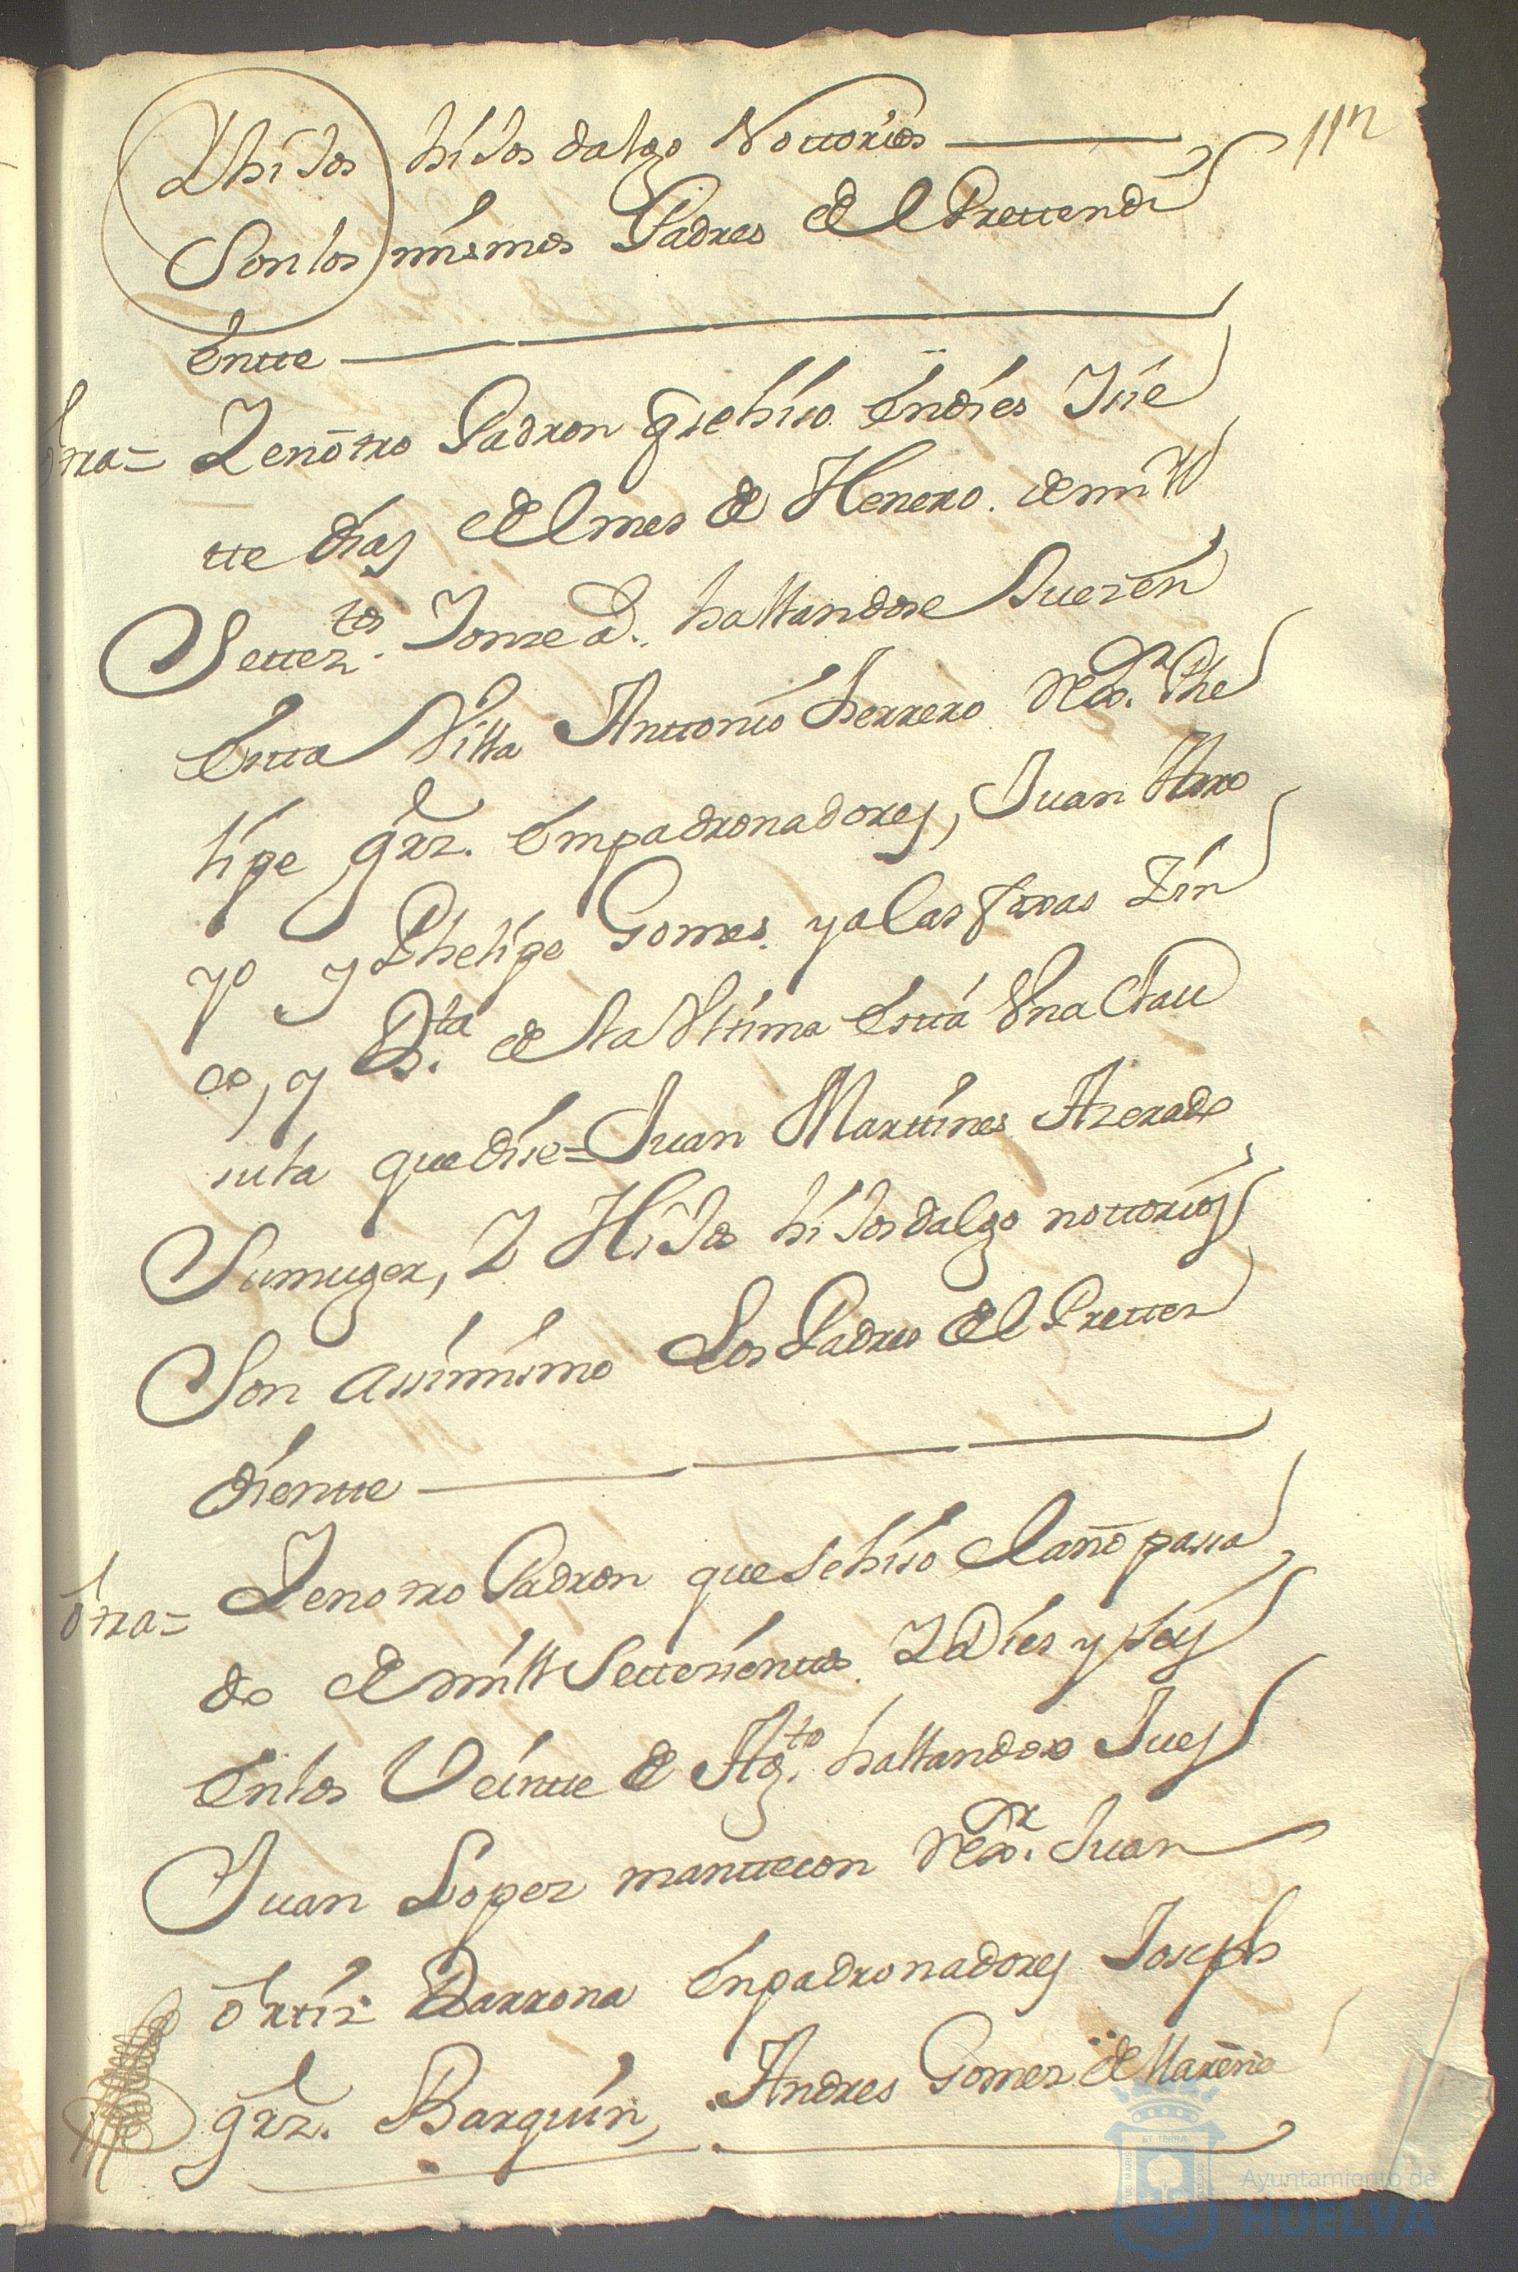 11
Y hijos hijos dalgo Nottorios
Son los mismos Padres de el Prettendi
entte
otra= Y en otro Padron q se hiso en dies Y sie
tte dias de el mes de Henero de mill
Settez.tos Y onze a.s hallandose Juez en
estta Villa Anttonio herrero Rex.or Phe
lipe grz. empadronadores, Juan Haro
yo y Phelipe Gomes. y a las foxas Zin
co, y B.ta de la Ultima esttá Una Clau
sula que dise= Juan Marttines Azerado
Su muger, Y Hijos hijosdalgo nottorios
Son assimismo Los Padres de el Pretten
dientte
otra= Y en otro Padron que se hiso el año passa
do de mill Settesienttos Y Dies y seis
en los Veintte de Ag.to hallandose Jues
Juan Lopez manttecon Rex.or Juan
ortiz Barrona enpadronadores Joseph
grz. Barquin, Andres Gomez de
ET TERRAE
Ayuntamiento de
HUELVA